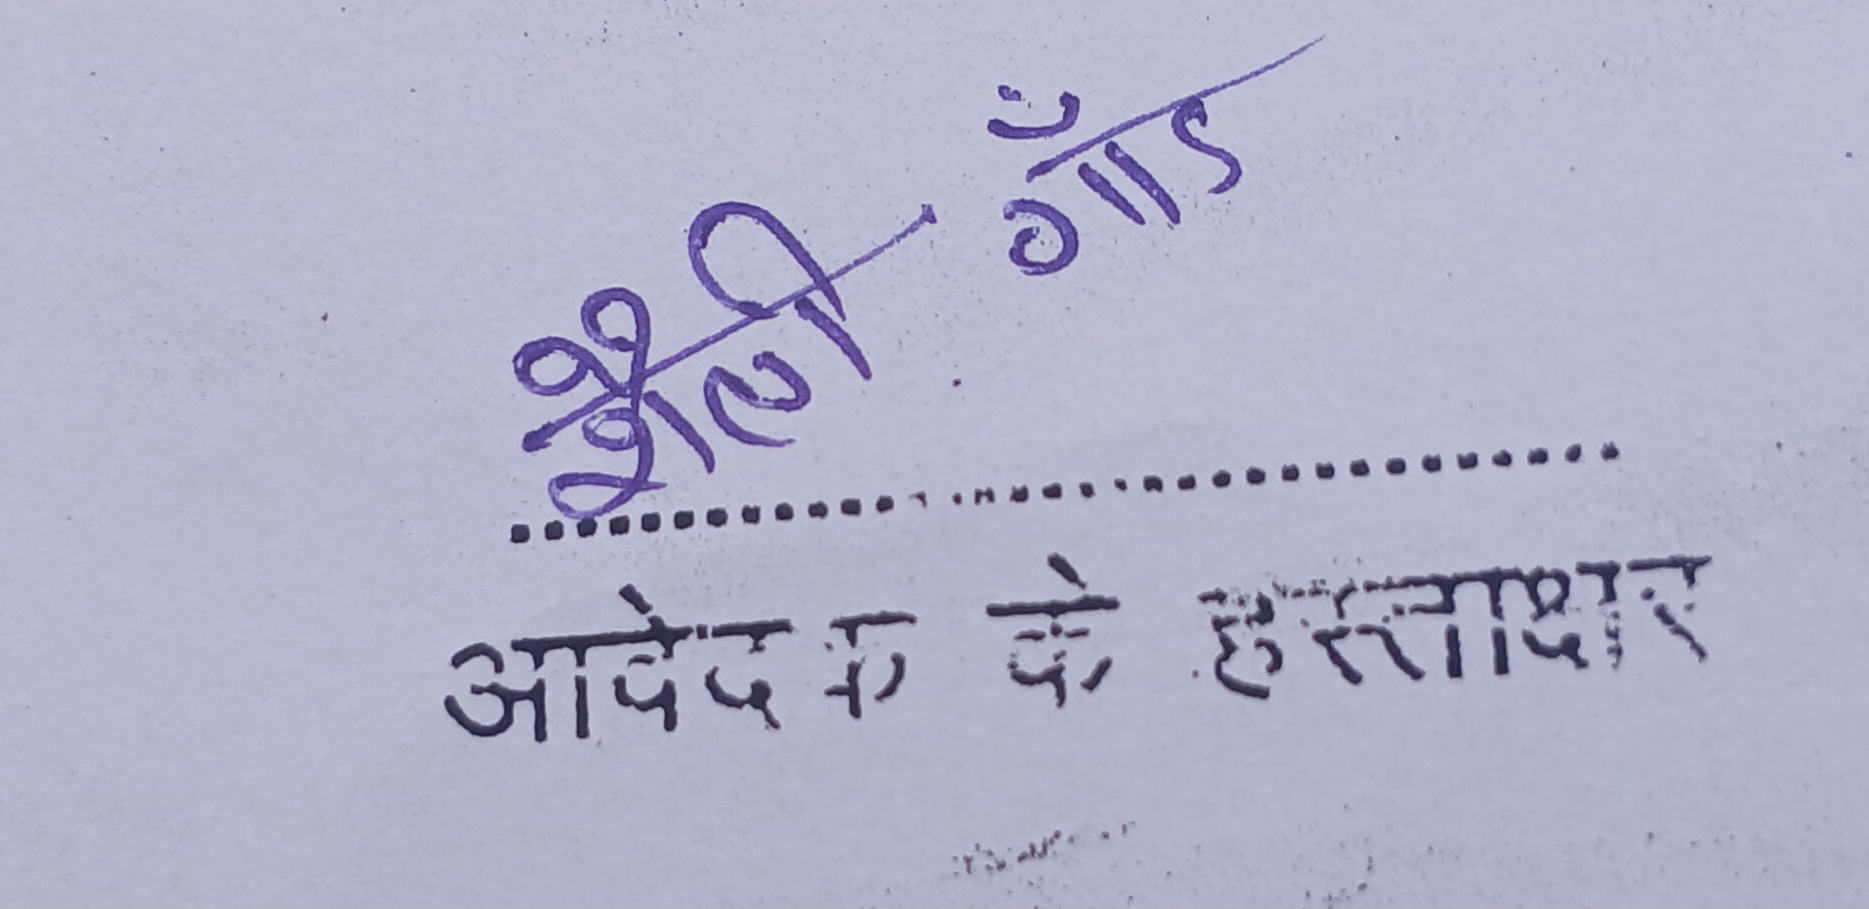 शैली गौंड
आवेदक के हस्ताक्षर